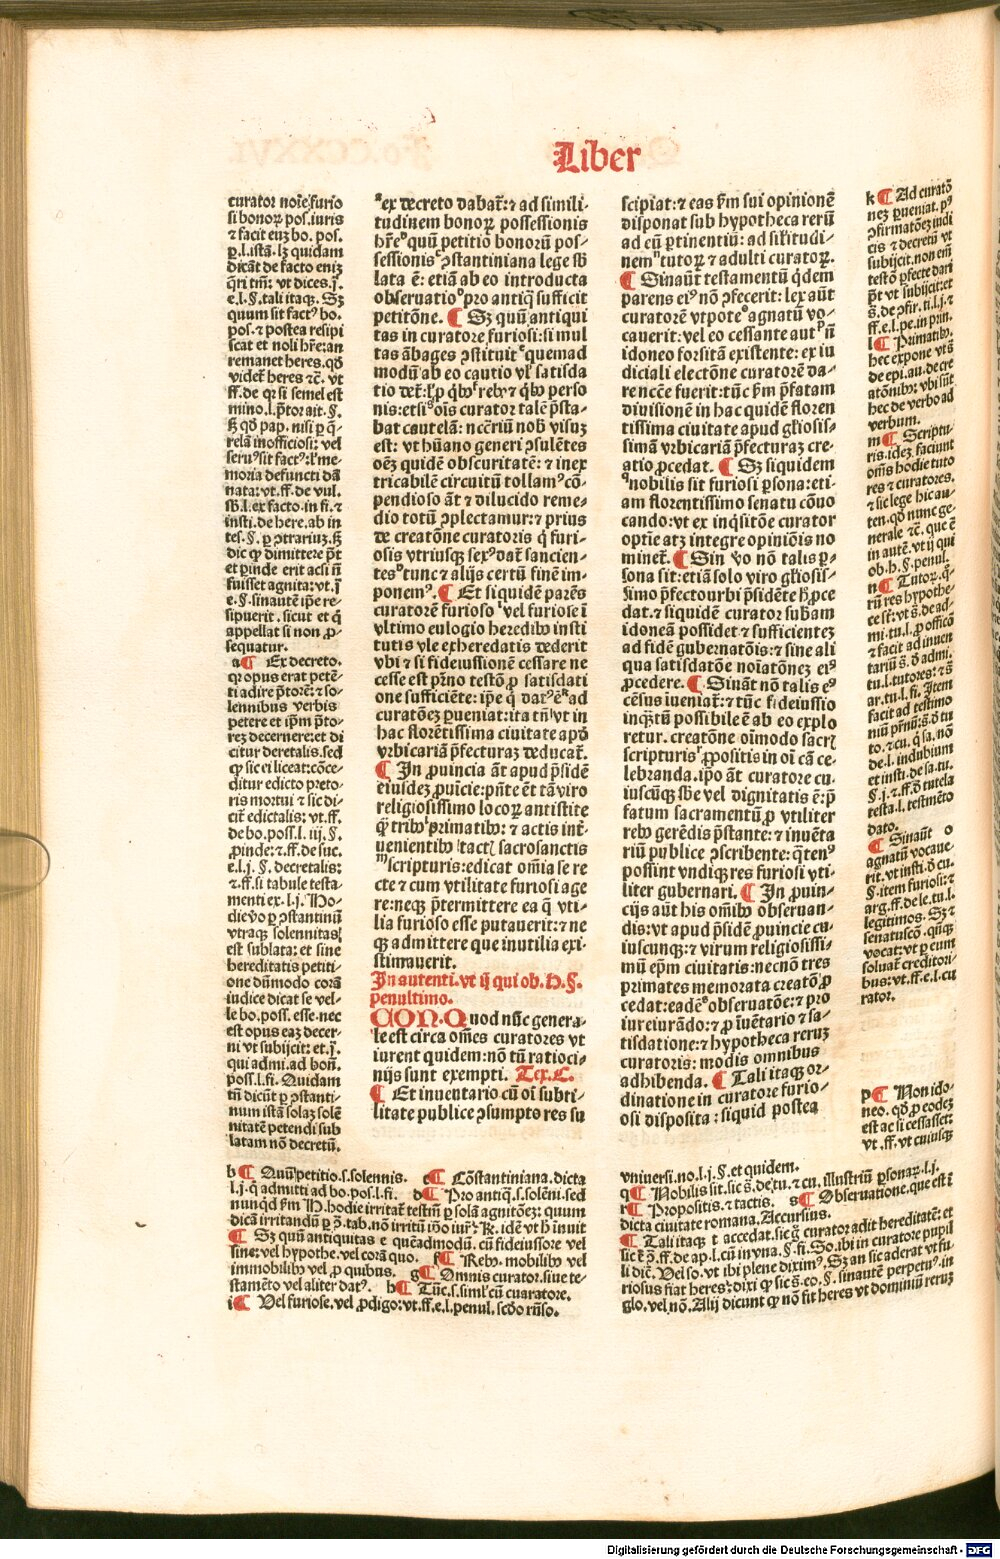 Liber
curator noīe furio
si bonoꝝ pos. iuris
⁊ facit euꝫ bo. pos.
ꝑ.l.istā. lꝫ quidam
dicāt de facto eniꝫ
q̄ri tm̄: vt dices.j̄.
e.l.§. tali itaqꝫ. Sꝫ
quum sit factꝰ bo.
pos. ⁊ postea resipi
scat et noli hr̄e: an
remanet heres. qd̄
videt̄ heres ⁊c̄. vt
ff. de
mino.l.p̄tor ait. §.
relā inofficiosi: vel
seruꝰ sit factꝰ: l' me-
moria defuncti dā
nata: vt. ff. de vul.
sb̄.l. ex facto. in fi. ⁊
insti. de here. ab in
tes. §. ꝑ ꝯtrariuꝫ. sꝫ
dic ꝙ dimittere p̄t
et ꝑinde erit acsi ñ
fuisset agnita: vt. j̄
e. §. sinautē ip̄e re-
sipuerit. sicut et q̄
appellat si non ꝓ-
sequatur.
a¶ Ex decreto.
qꝛ opus erat petē-
ti adire p̄torē: ⁊ so-
lennibus verbis
petere et ip̄m p̄to-
reꝫ decernere: et di
citur deretalis. sed
ꝙ sic ei liceat: cōce-
ditur edicto preto-
ris mortui ⁊ sic di-
cit̄ edictalis: vt. ff.
de bo. poss.l. iij. §.
ꝓinde: ⁊. ff. de suc.
e.l.j. §. decretalis:
⁊. ff. si tabule testa-
menti ex. l. j. Ho-
die v̄o ꝑ ꝯstantinū
vtraqꝫ solennitas
est sublata: et sine
hereditatis petiti-
one dūmodo corā
iudice dicat se vel-
le bo. poss. esse. nec
est opus eaꝫ decer-
ni vt subijcit: et. j̄.
qui admi. ad bon̄.
poss. l. fi. Quidam
tn̄ dicūt ꝑ ꝯstanti-
num istā solaꝫ solē
nitatē petendi sub
latam nō decretū.
ᵃex decreto dabat̄: ⁊ ad simili-
tudinem bonoꝝ possessionis
hr̄e ᵇquū petitio bonorū pos-
sessionis ᶜꝯstantiniana lege sb̄
lata ē: etiā ab eo introducta
obseruatio ᵈpro antiq̄ sufficit
petitōne. ¶ Sꝫ quū antiqui
tas in curatore furiosi: si mul
tas ābages ꝯstituit ᵉquemad
modū ab eo cautio vl' satisda
tio det̄: l' ꝓ qb̄ꝰ ᶠrebꝰ ⁊ qb̄ꝰ perso
nis: etsi ᵍoīs curator talē p̄sta-
bat cautelā: nc̄cr̄iū nob̄ visuꝫ
est: vt hūano generi ꝯsulētes
oēꝫ quidē obscuritatē: ⁊ inex
tricabilē circuitū tollamꝰ: cō-
pendioso āt ⁊ dilucido reme-
dio totū ꝯplectamur: ⁊ prius
de creatōne curatoris q̄ furi-
osis vtriusqꝫ sexꝰ dat̄ sancien-
tes ʰtunc ⁊ alijs certū finē im-
ponemꝰ. ¶ Et siquidē parēs
curatorē furioso ⁱvel furiose ī
vltimo eulogio heredibꝰ insti
tutis vle exheredatis dederit
vbi ⁊ si fideiussionē cessare ne
cesse est pr̄no testōꝫ ꝓ satisdati
one sufficiēte: ip̄e q̄ datꝰ ē ᵏad
curatōeꝫ ꝑueniat: ita tn̄ vt in
hac florētissima ciuitate apd̄
vrbicariā p̄fecturaꝫ deducat̄.
¶ In ꝓuincia āt apud p̄sidē
eiusdeꝫ ꝓuīcie: pn̄te ēt tā viro
religiosissimo locoꝝ antistite
q̄ tribꝰ ˡprimatibꝰ: ⁊ actis int̄
uenientibꝰ tactꝭ sacrosanctis
ᵐscripturis: edicat om̄ia se re
cte ⁊ cum vtilitate furiosi age
re: neqꝫ p̄termittere ea q̄ vti-
lia furioso esse putauerit: ⁊ ne
qꝫ admittere que inutilia exi-
stimauerit.
In autenti. vt ij qui ob. h. §.
penultimo.
CON. Quod nūc genera-
le est circa om̄es curatores vt
iurent quidem: nō tn̄ ratioci-
nijs sunt exempti. Tex. C.
¶ Et inuentario cū oī subti-
litate publice ꝯsumpto res su
scipiat: ⁊ eas ẜm sui opinionē
disponat sub hypotheca rerū
ad eū ꝑtinentiū: ad sil'itudi-
nem ⁿtutoꝝ ⁊ adulti curatoꝝ.
¶ Sinaūt testamentū q̄dem
parens eiꝰ nō ꝯfecerit: lex aūt
curatorē vtpote ᵒagnatū vo-
cauerit: vel eo cessante aut ᵖñ
idoneo forsitā existente: ex iu
diciali electōne curatorē da-
re nc̄cē fuerit: tūc ẜm p̄fatam
diuisionē in hac quidē floren
tissima ciuitate apud gl'iosis-
simā vrbicariā p̄fecturaꝫ cre-
atio ꝓcedat. ¶ Sꝫ siquidem
ᑫnobilis sit furiosi ꝑsona: eti-
am florentissimo senatu cōuo
cando: vt ex inq̄sitōe curator
optie atqꝫ integre opiniōis no
minet̄. ¶ Sin v̄o nō talis ꝑ-
sona sit: etiā solo viro gl'iosis-
simo p̄fecto vrbi p̄sidēte h̄ ꝓce
dat. ⁊ siquidē curator sub̄am
idoneā possidet ⁊ sufficienteꝫ
ad fidē gubernatōis: ⁊ sine ali
qua satisdatōe noīatōneꝫ eiꝰ
ꝓcedere. ¶ Sināt nō talis eꝰ
cēsus iueniat̄: ⁊ tūc fideiussio
inqꝫtū possibile ē ab eo explo
retur. creatōne oīmodo sacꝝ
scripturis ʳꝓpositis in oī cā ce
lebranda. ip̄o āt curatore cu-
iuscūqꝫ sb̄e vel dignitatis ē: p̄
fatum sacramentū ꝓ vtiliter
rebꝰ gerēdis p̄stante: ⁊ inuēta
riū publice ꝯscribente: q̄tenꝰ
possint vndiqꝫ res furiosi vti-
liter gubernari. ¶ In ꝓuin-
cijs aūt his om̄ibꝰ obseruan-
dis: vt apud p̄sidē ꝓuincie cu-
iuscunqꝫ: ⁊ virum religiosissi-
mū ep̄m ciuitatis: necnō tres
primates memorata creatō ꝓ
cedat: eadē ˢobseruatōe: ⁊ pro
iureiurādo: ⁊ ꝓ īuētario ⁊ sa-
tisdatione: ⁊ hypotheca reruꝫ
curatoris: modis omnibus
adhibenda. ¶ Tali itaqꝫ or-
dinatione in curatore furio-
osi disposita: siquid postea
k¶ Ad curatō
neꝫ ꝑueniat. pꝰ
ꝯfirmatōeꝫ iudi
cis ⁊ decretū vt
subijcit. non em̄
testō ꝑfecte dari
p̄t vt subijcit: et
s̄. de ꝯfir. ti. l. j. ⁊
ff. e. l. pe. in prin.
l¶ Primatibꝰ.
hec expone vt s̄
de epi. au. decre
atōnibꝰ: vbi sūt
hec de verbo ad
verbum.
m¶ Scriptu-
ris. ideꝫ faciunt
om̄s hodie tuto
res ⁊ curatores.
⁊ sic lege hic au-
ten. qd̄ nunc ge-
nerale ⁊c̄. que ē
in autē. vt ij qui
ob. h. §. penul.
n¶ Tutoꝝ. q̄-
rū res hypothe-
ce st̄: vt s̄. de ad-
mi. tu. l. ꝓ officō
⁊ facit ad inuen
tariū s̄. d̄ admi.
tu. l. tutores: ⁊ s̄
ar. tu. l. fi. Item
facit ad testimo
niū pr̄nū: s̄. d̄ tu
to. ⁊ cu. q̄ sa. nō
de. l. indubium
et insti. de sa. tu.
§. j. ⁊. ff. d̄ tutela
testa. l. testmēto
dato.
¶ Sinaūt o
agnatū vocaue-
rit. vt insti. d̄ cu.
§. item furiosi: ⁊
arg. ff. de le. tu. l.
legitimos. Sꝫ ⁊
senatuscō. qn̄qꝫ
vocat: vt ꝑ eum
soluat̄ creditori-
bus: vt. ff. e. l. cu
rator.
p¶ Non ido-
neo. qd̄ ꝓ eodeꝫ
est ac si cessasset:
vt. ff. vt cuiusqꝫ
b¶ Quū petitio. s. solennis. c¶ Cōstantiniana. dicta
l. j. q̄ admitti ad bo. pos. l. fi. d¶ Pro antiq̄. s. solēni. sed
nunqd̄ ẜm H. hodie irritat̄ testm̄ ꝑ solā agnitōeꝫ: quum
¶ Sꝫ quū antiquitas e quēadmodū. cū fideiussore vel
sine: vel hypothe. vel corā quo. f¶ Rebꝰ. mobilibꝰ vel
immobilibꝰ vel ꝓ quibus. g¶ Omnis curator. siue te-
stamēto vel aliter datꝰ. h¶ Tūc. s. siml' cū cuaratore.
i¶ Vel furiose. vel ꝓdigo: vt. ff. e. l. penul. scd̄o rn̄so.
vniuersi. no. l. j. §. et quidem.
q¶ Nobilis sit. sic s̄. de. tu. ⁊ cu. illustriū ꝑsonaꝝ. l. j.
r¶ Propositis. ⁊ tactis. s¶ Obseruatione. que est ī
dicta ciuitate romana. Accursius.
¶ Tali itaqꝫ t accedat. sic q̄ curator adit hereditatē: et
sic ē ꝯ̄. ff. de ap. l. cū in vna. §. fi. So. ibi in curatore pupil
li dic̄. Vel so. vt ibi plene diximꝰ. Sꝫ an sic aderat vt fu-
riosus fiat heres: dixi ꝙ sic s̄. eo. §. sinautē perpetuꝰ. in
glo. vel nō. Alij dicunt ꝙ nō fit heres vt dominiū reruꝫ
Digitalisierung gefördert durch die Deutsche Forschungsgemeinschaft - DFG